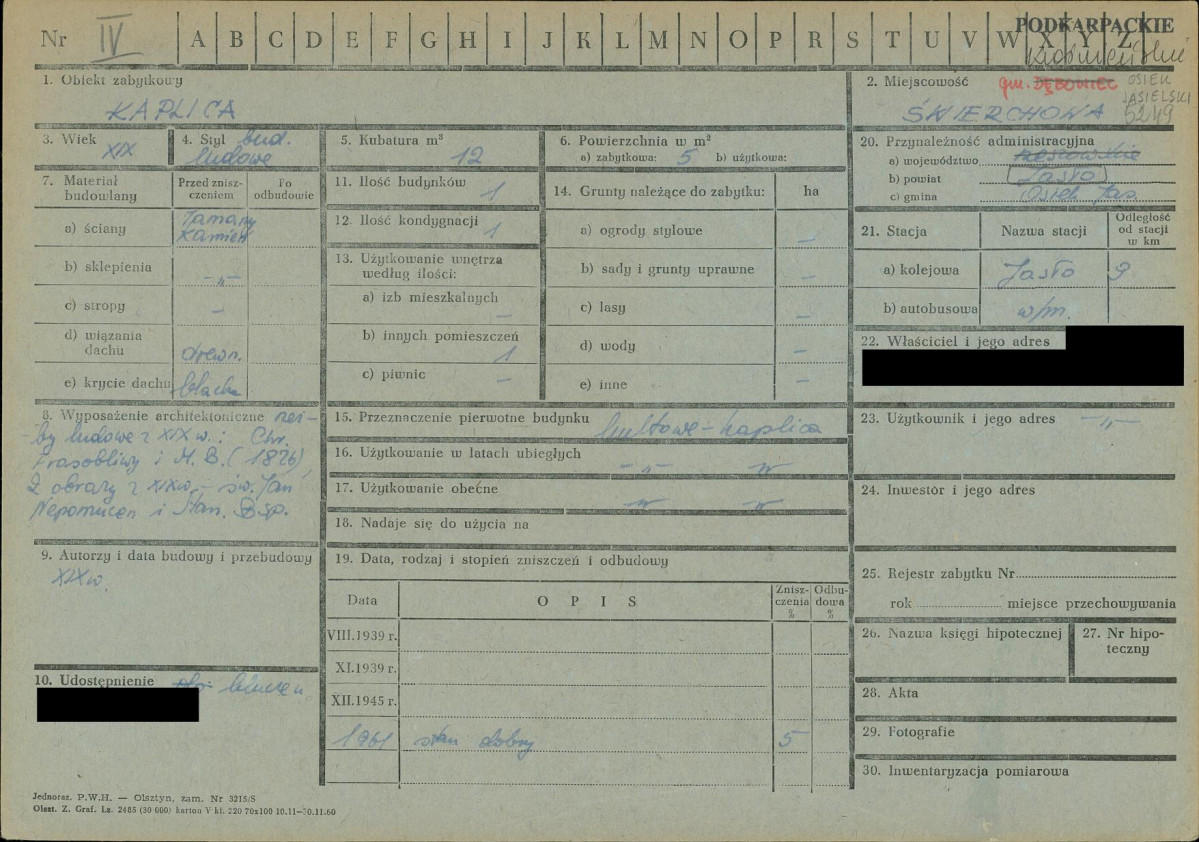 Nr IV A B C D E F G H I J K L M N O P R S T U V W X Y Z
PODKARPACKIE
1. Obiekt zabytkowy
KAPLICA
2. Miejscowość gm. DĘBOWIEC OSIEK
JASIELSKI
ŚWIERCHOWA 5249
3. Wiek
XIX
4. Styl bud.
ludowe
5. Kubatura m³
12
6. Powierzchnia w m²
a) zabytkowa: 5 b) użytkowa:
7. Materiał
budowlany
Przed znisz-
czeniem
Po
odbudowie
a) ściany
łamany
kamień
b) sklepienia -„-
c) stropy -
d) wiązania
dachu drewn.
e) krycie dachu blacha
8. Wyposażenie architektoniczne rzeź-
by ludowe z XIX w.: Chr.
Frasobliwy i M. B. (1876),
2 obrazy z XIX w. - św. Jan
Nepomucen i Stan. Bsp.
9. Autorzy i data budowy i przebudowy
XIX w.
10. Udostępnienie
11. Ilość budynków
1
12. Ilość kondygnacji
1
13. Użytkowanie wnętrza
według ilości:
a) izb mieszkalnych -
b) innych pomieszczeń
1
c) piwnic -
14. Grunty należące do zabytku: ha
a) ogrody stylowe -
b) sady i grunty uprawne -
c) lasy -
d) wody -
e) inne -
15. Przeznaczenie pierwotne budynku kultowe - kaplica
16. Użytkowanie w latach ubiegłych -„- -„-
17. Użytkowanie obecne -„- -„-
18. Nadaje się do użycia na
19. Data, rodzaj i stopień zniszczeń i odbudowy
Data O P I S Znisz-
czenia
% Odbu-
dowa
%
VIII.1939 r.
XI.1939 r.
XII.1945 r.
1961 stan dobry 5
20. Przynależność administracyjna
a) województwo rzeszowskie
b) powiat Jasło
c) gmina Osiek Jas.
21. Stacja Nazwa stacji Odległość
od stacji
w km
a) kolejowa Jasło 9
b) autobusowa w/m.
22. Właściciel i jego adres
23. Użytkownik i jego adres -„-
24. Inwestor i jego adres
25. Rejestr zabytku Nr
rok miejsce przechowywania
26. Nazwa księgi hipotecznej
27. Nr hipo-
teczny
28. Akta
29. Fotografie
30. Inwentaryzacja pomiarowa
Jednoraz. P.W.H. — Olsztyn, zam. Nr 3215/S
Olszt. Z. Graf. Lz. 2485 (30 000) karton V kl. 220 70x100 10.11—30.11.60